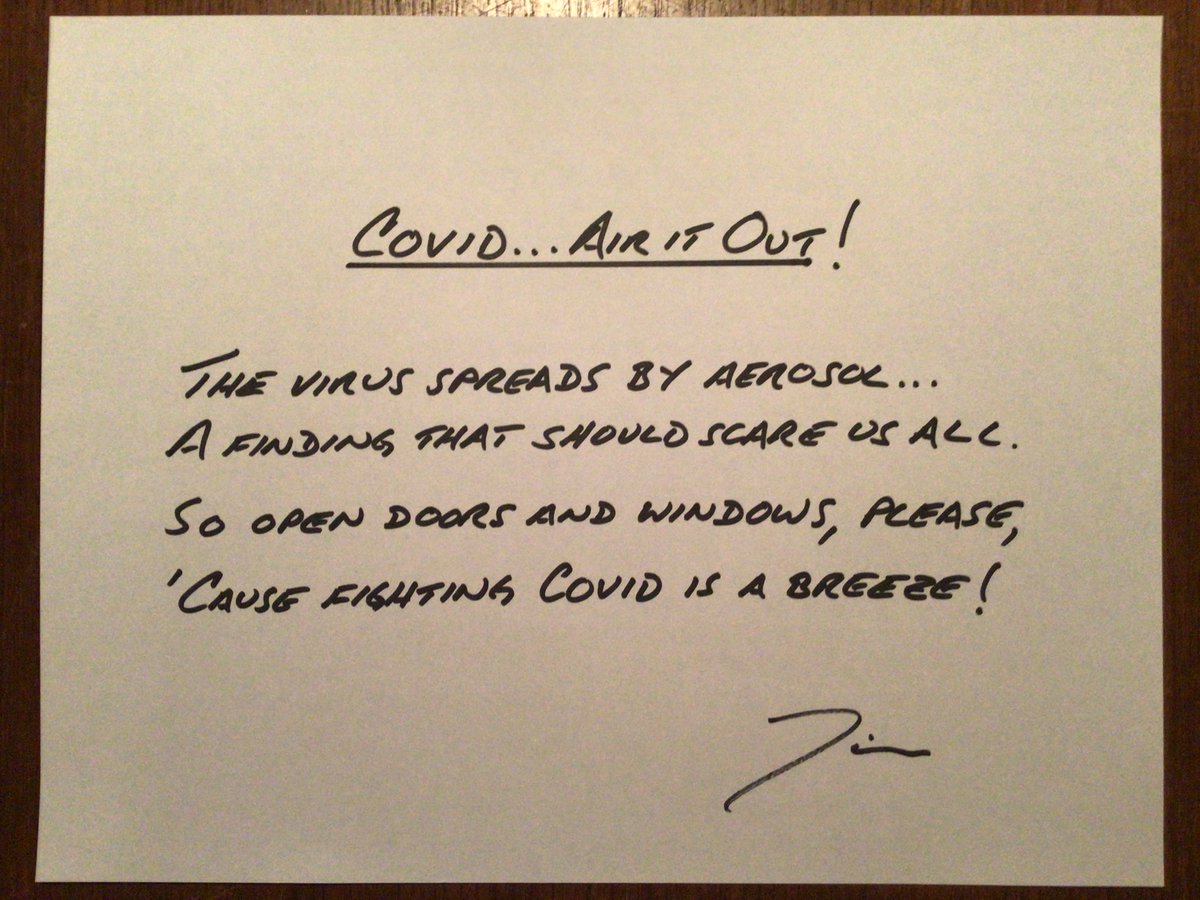 COVID... AIR IT OUT!
THE VIRUS SPREADS BY AEROSOL...
A FINDING THAT SHOULD SCARE US ALL.
SO OPEN DOORS AND WINDOWS, PLEASE,
'CAUSE FIGHTING COVID IS A BREEZE!